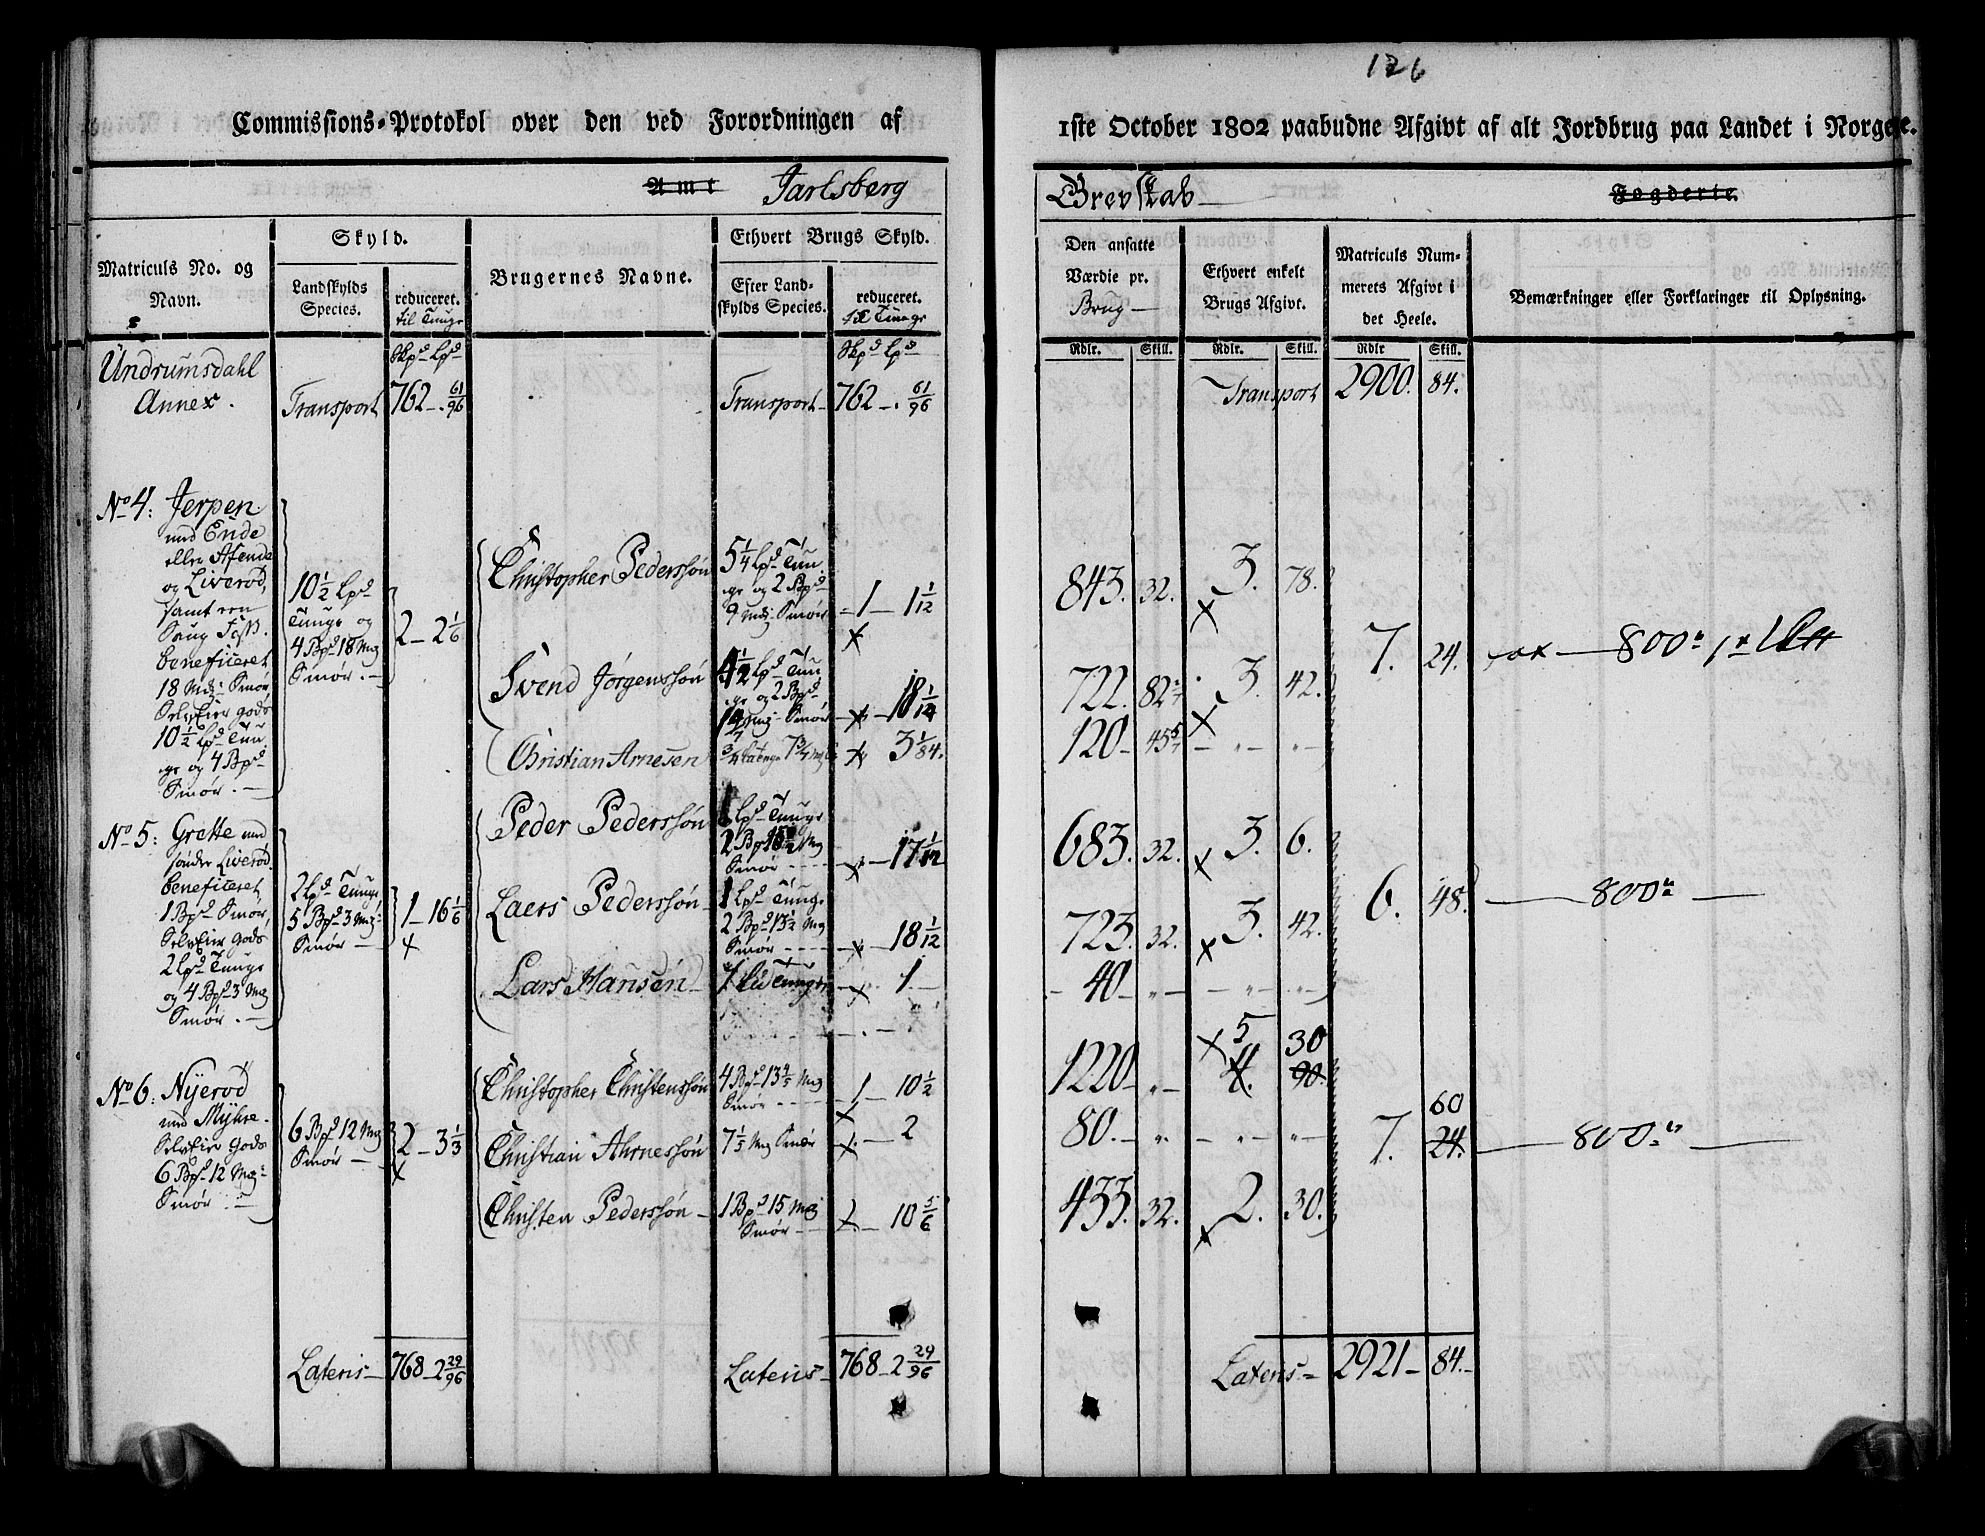 126
Commissions-Protokol over den ved Forordningen af
1ste October 1802 paabudne Afgivt af alt Jordbrug paa Landet i Norge.
Amt Jarlsberg
Grevskab Fogderie
Matriculs No. og Navn.
Skyld.
Landskylds Species.
reduceret.
til Tunge
Brugernes Navne.
Ethvert Brugs Skyld.
Efter Landskylds Species.
reduceret.
til Tunge
Den ansatte Værdie pr. Brug
Ethvert enkelt Brugs Afgivt.
Matriculs Nummerets Afgivt i det Heele.
Bemærkninger eller Forklaringer til Oplysning.
Skpd Lpd
Skpd Lpd
Rdlr. Skill. Rdlr. Skill. Rdlr Skill.
Undrumsdahl
Annex.
Transport 762 -. 61/96
Transport 762 -. 61/96
Transport 2900. 84.
No 4: Jerpen
med Ende
eller Afende
og Liverød,
samt een
Saug
beneficeret
18 Mk: Smør,
SelvEier gods
10 1/2 Lpd Tun
ge og 4 Bpd
Smør.
10 1/2 Lpd
Tunge og
4 Bpd 18 Mk
Smør.
2 - 2 1/6
Christopher Pederssøn
5 1/4 Lpd Tun
ge og 2 Bpd
9 Mk: Smør
1 - 1 1/12
843. 32. 3. 78.
Svend Jørgenssøn
4 1/2 Lpd Tun
ge og 2 Bpd
Smør
18 1/14
722. 82 3. 42.
7. 24.
800
Christian Arnesen
3 1/84.
120 - 45
No 5: Grette med
søndre Liverød
beneficeret
1 Bpd Smør,
SelvEier Gods
2 Lpd Tunge
og 4 Bpd 3 Mk
Smør.
2 Lpd Tunge
5 Bpd 3 Mk
Smør
1 - 16 1/6
Peder Pederssøn
1 Lpd Tunge
2 Bpd Mk
Smør
17 1/12
683. 32. 3. 6.
Laers Pederssøn
1 Lpd Tunge
2 Bpd 13 1/2 Mk
Smør
18 1/12
723. 32. 3. 42.
6. 48.
800
Lars Hansen
1 Lpd Tunge
1.
40
No 6: Nyerød
med Myhre.
SelvEier Gods
6 Bpd 12 Mk:
Smør
6 Bpd 12 Mk
Smør
2 - 3 1/3
Christopher Christenssøn
4 Bpd 13 4/5 Mk
Smør
1 10 1/2
1220 5 30
4. 90.
Christian Ahrnessøn
7 1/5 Mk Smør
2
80.
7. 60
24.
800
Christen Pederssøn
1 Bpd 15 Mk
Smør
10 5/6
433. 32. 2. 30.
Lateris 768 - 2 29/96
Lateris 768 - 2 29/96
Lateris 2921 - 84.